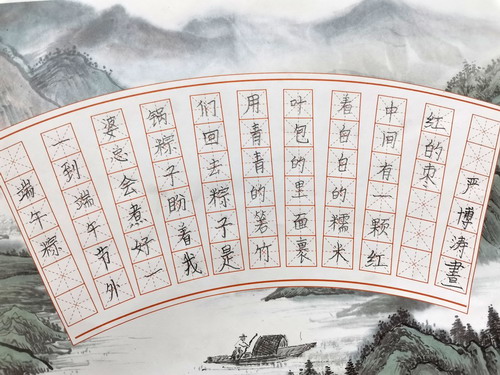 端午粽
一到端午节外
婆总会煮好一
锅粽子盼着我
们回去粽子是
用青青的箬竹
叶包的里面裹
着白白的糯米
中间有一颗红
红的枣
严博涛畫